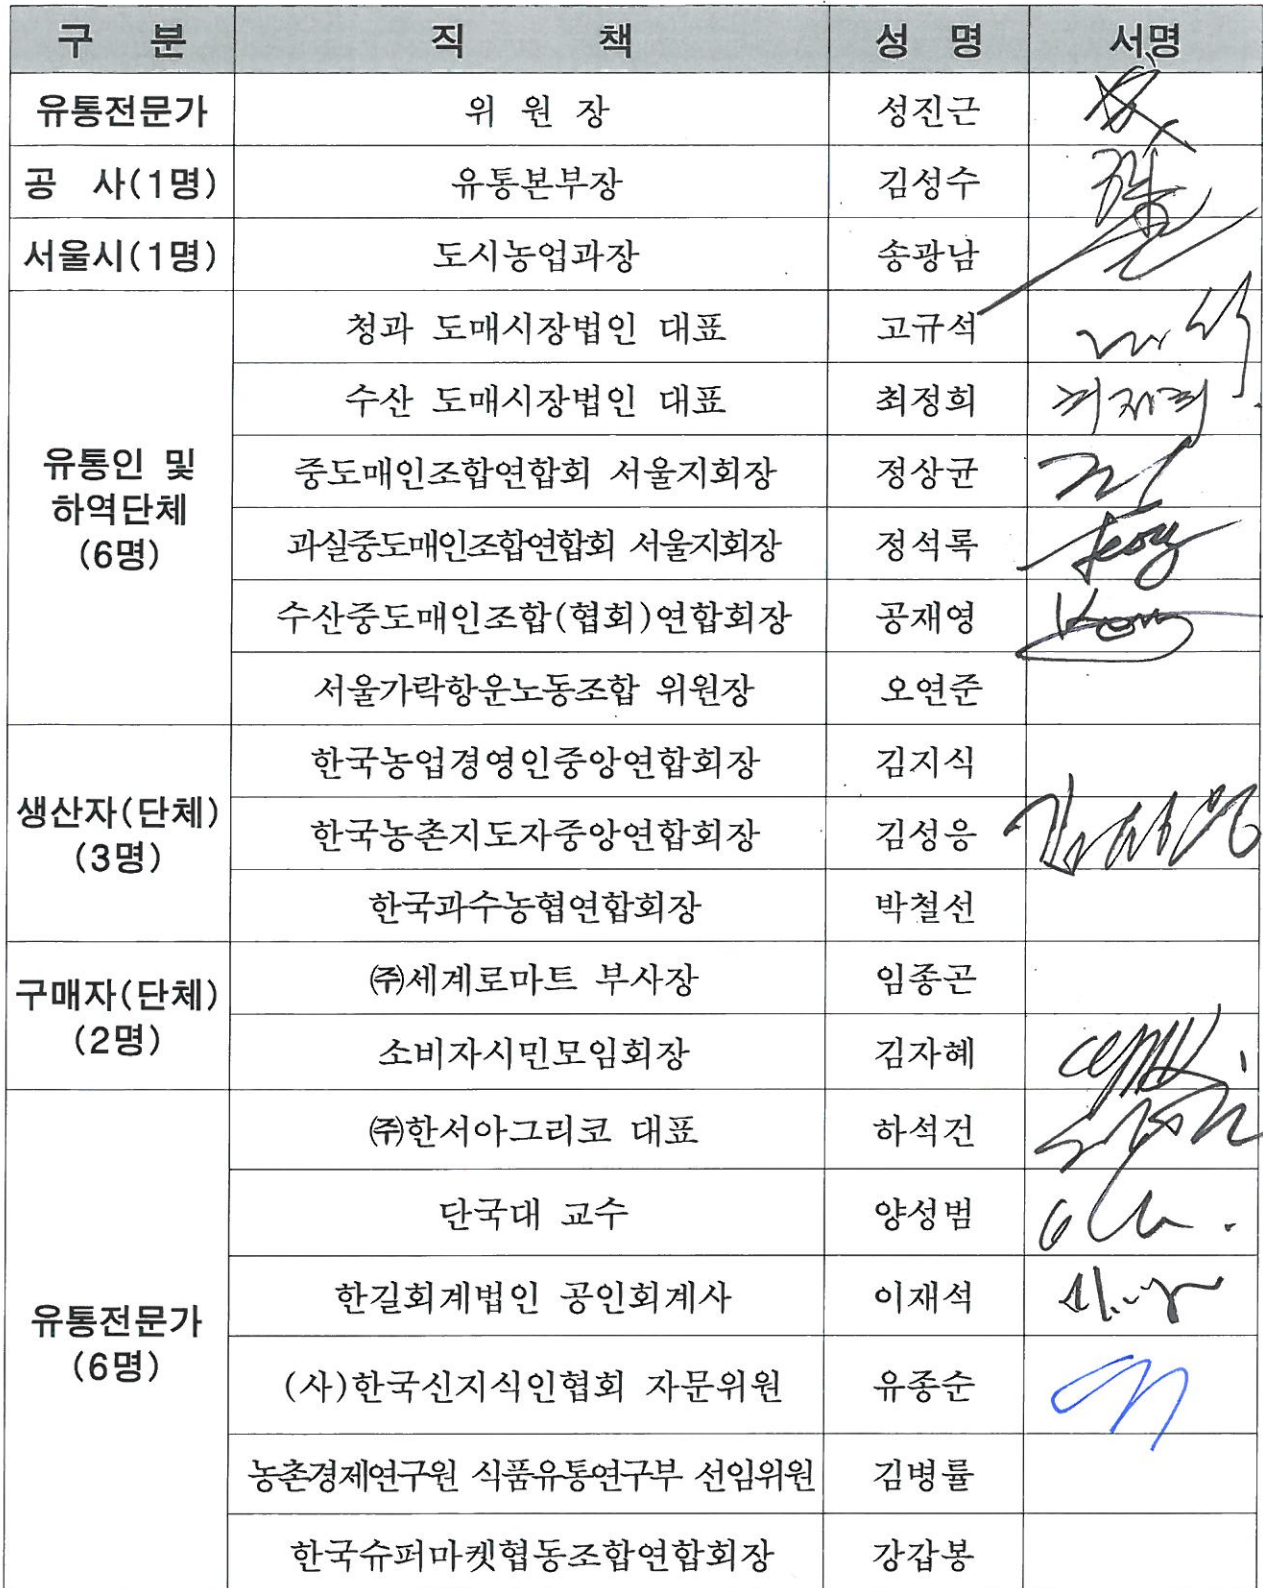 구 분 직 책 성 명 서명
유통전문가 위 원 장 성진근
공 사(1명) 유통본부장 김성수
서울시(1명) 도시농업과장 송광남
유통인 및
하역단체
(6명)
청과 도매시장법인 대표 고규석
수산 도매시장법인 대표 최정희
중도매인조합연합회 서울지회장 정상균
과실중도매인조합연합회 서울지회장 정석록
수산중도매인조합(협회)연합회장 공재영
서울가락항운노동조합 위원장 오연준
생산자(단체)
(3명)
한국농업경영인중앙연합회장 김지식
한국농촌지도자중앙연합회장 김성응
한국과수농협연합회장 박철선
구매자(단체)
(2명)
㈜세계로마트 부사장 임종곤
소비자시민모임회장 김자혜
유통전문가
(6명)
㈜한서아그리코 대표 하석건
단국대 교수 양성범
한길회계법인 공인회계사 이재석
(사)한국신지식인협회 자문위원 유종순
농촌경제연구원 식품유통연구부 선임위원 김병률
한국슈퍼마켓협동조합연합회장 강갑봉